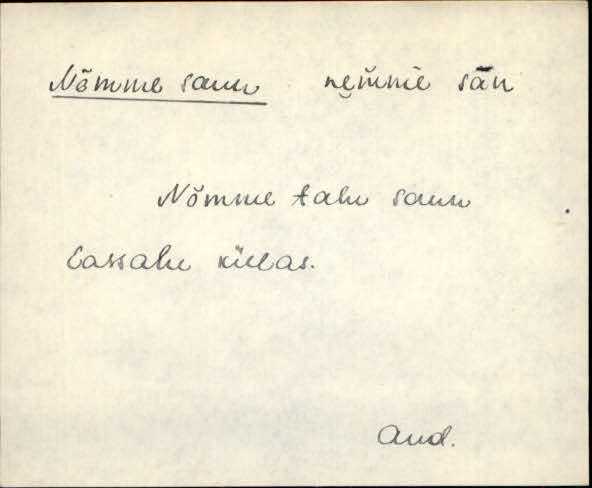 Nõmme saun   ne̮m̆mè sān
Nõmme talu saun
Lassalu külas.
Aud.